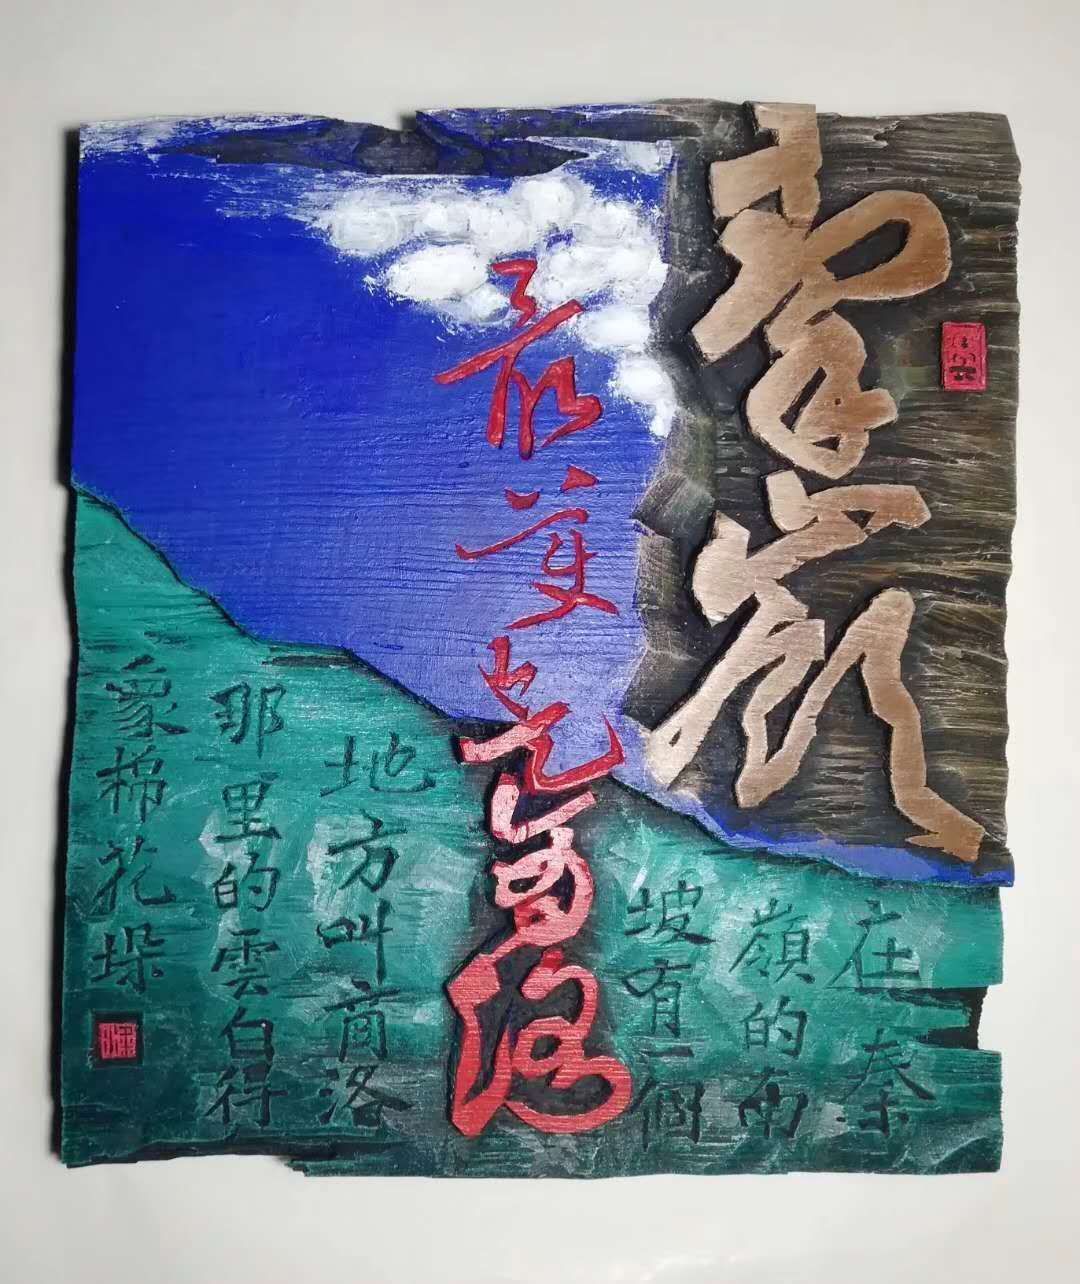 秦嶺
最美是商洛
在秦
嶺的南
坡有一個
地方叫商洛
那里的雲白得
象棉花垛